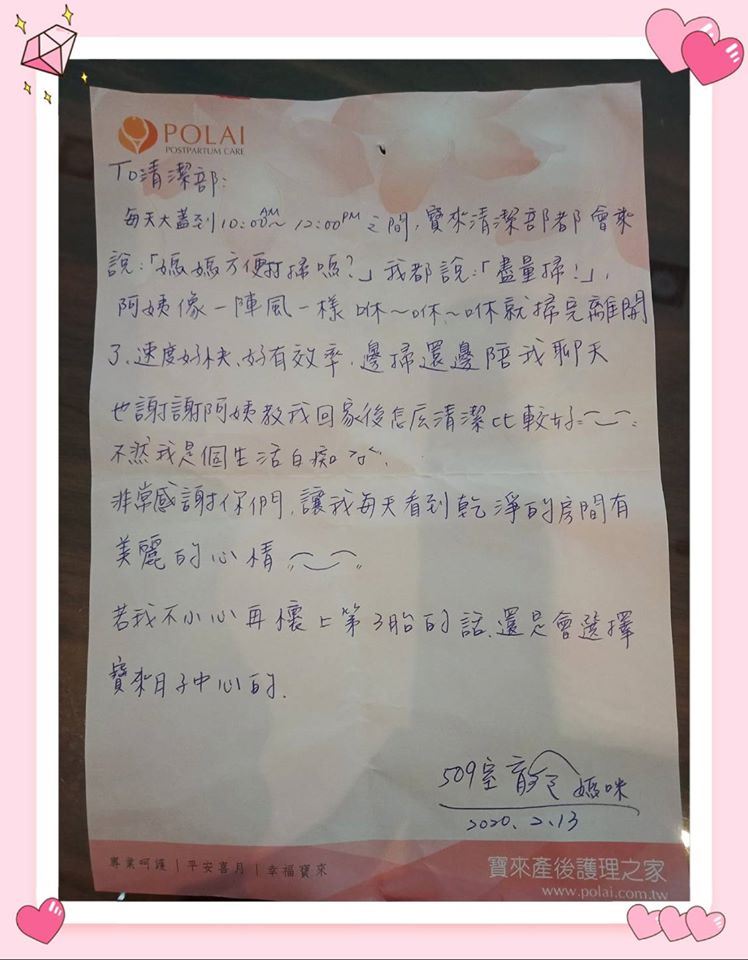 POLAI
POSTPARTUM CARE
To清潔部:
每天大蓋到10:00AM~12:00PM之間,寶來清潔部都會來
說:「媽媽方便打掃嗎?」我都說:「盡量掃!」,
阿姨像一陣風一樣咻~咻~咻就掃完離開
了.速度好快、好有效率,邊掃還邊陪我聊天
也謝謝阿姨教我回家後怎么清潔比較好
不然我是個生活白痴
非常感謝你們,讓我每天看到乾淨的房間有
美麗的心情
若我不小心再懷上第3胎的話.還是會選擇
寶來月子中心的.
509室 媽咪
2020.2.13
專業呵護|平安喜月|幸福寶來
寶來產後護理之家
www.polai.com.tw